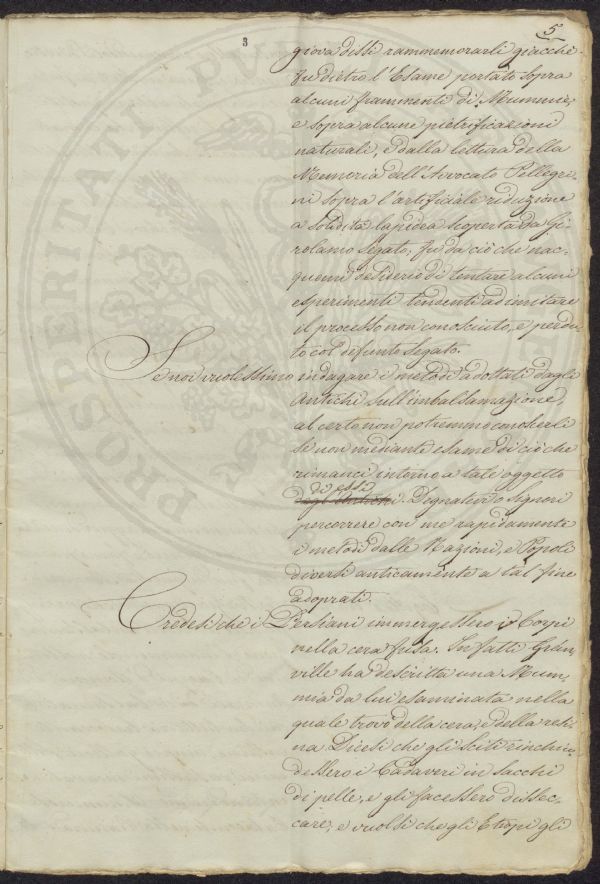 5
3
giova dissi rammemorarli giacchè
fu dietro l'Esame portato sopra
alcuni frammenti di Mummie,
e sopra alcune pietrificazioni
naturali, e dalla lettura della
Memoria dell'Avvocato Pellegri-
ni sopra l'artificiale riduzione
a solidità lapidea scoperta da Gi-
rolamo Segato, fu da ciò che nac-
quemi desiderio di tentare alcuni
esperimenti tendenti ad imitare
il processo non conosciuto, e perdu-
to col defunto Segato.
Se noi vuolessimo indagare i metodi adottati dagli
Antichi sull'imbalsamazione,
al certo non potremmo conoscerli
se non mediante esame di ciò che
rimanci intorno a tale oggetto
di essi
degli Antichi. Degnatevi o Signori
percorrere con me rapidamente
i metodi dalle Nazioni, e Popoli
diversi anticamente a tal fine
adoprati.
Credesi che i Persiani immergessero i Corpi
nella cera fusa. In fatti Gran-
ville ha descritta una Mum-
mia da lui esaminata nella
quale trovò della cera, e della resi-
na. Dicesi che gli Sciti rinchiu-
dessero i Cadaveri in sacchi
di pelle, e gli facessero dissec-
care, e vuolsi che gli Etiopi gli
PROSPERITATI PUBLICAE